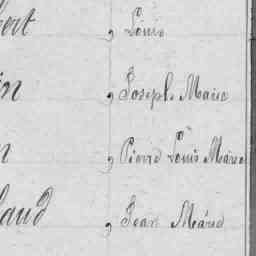 bert , Louis
in , Joseph Marie
n , Pierre Louis Marie
laud , Jean Marie